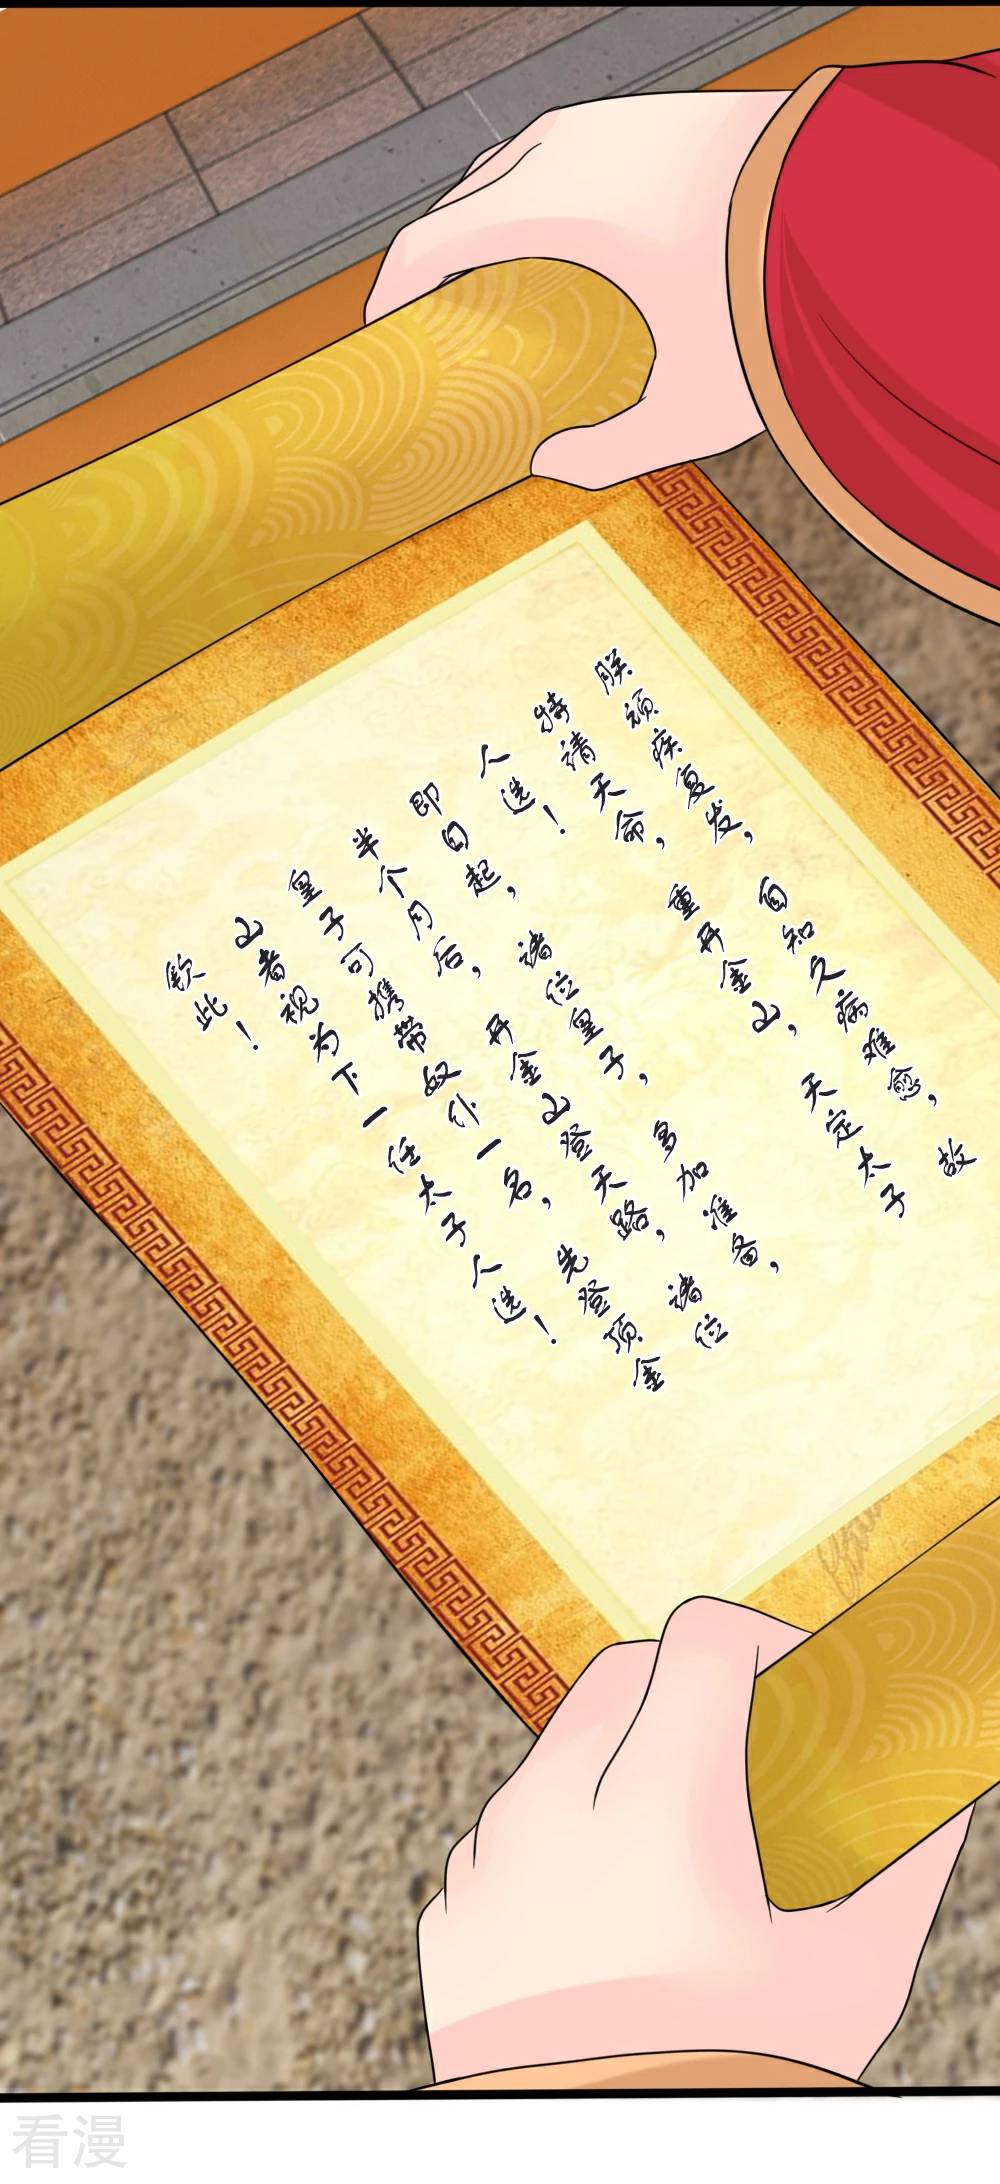 朕顽疾复发，自知久病难愈，故
特请天命，重开金山，天定太子
人选！
即日起，诸位皇子，多加准备，
半个月后，开金山登天路，诸位
皇子可携带奴仆一名，先登顶金
山者视为下一任太子人选！
钦此！
看漫